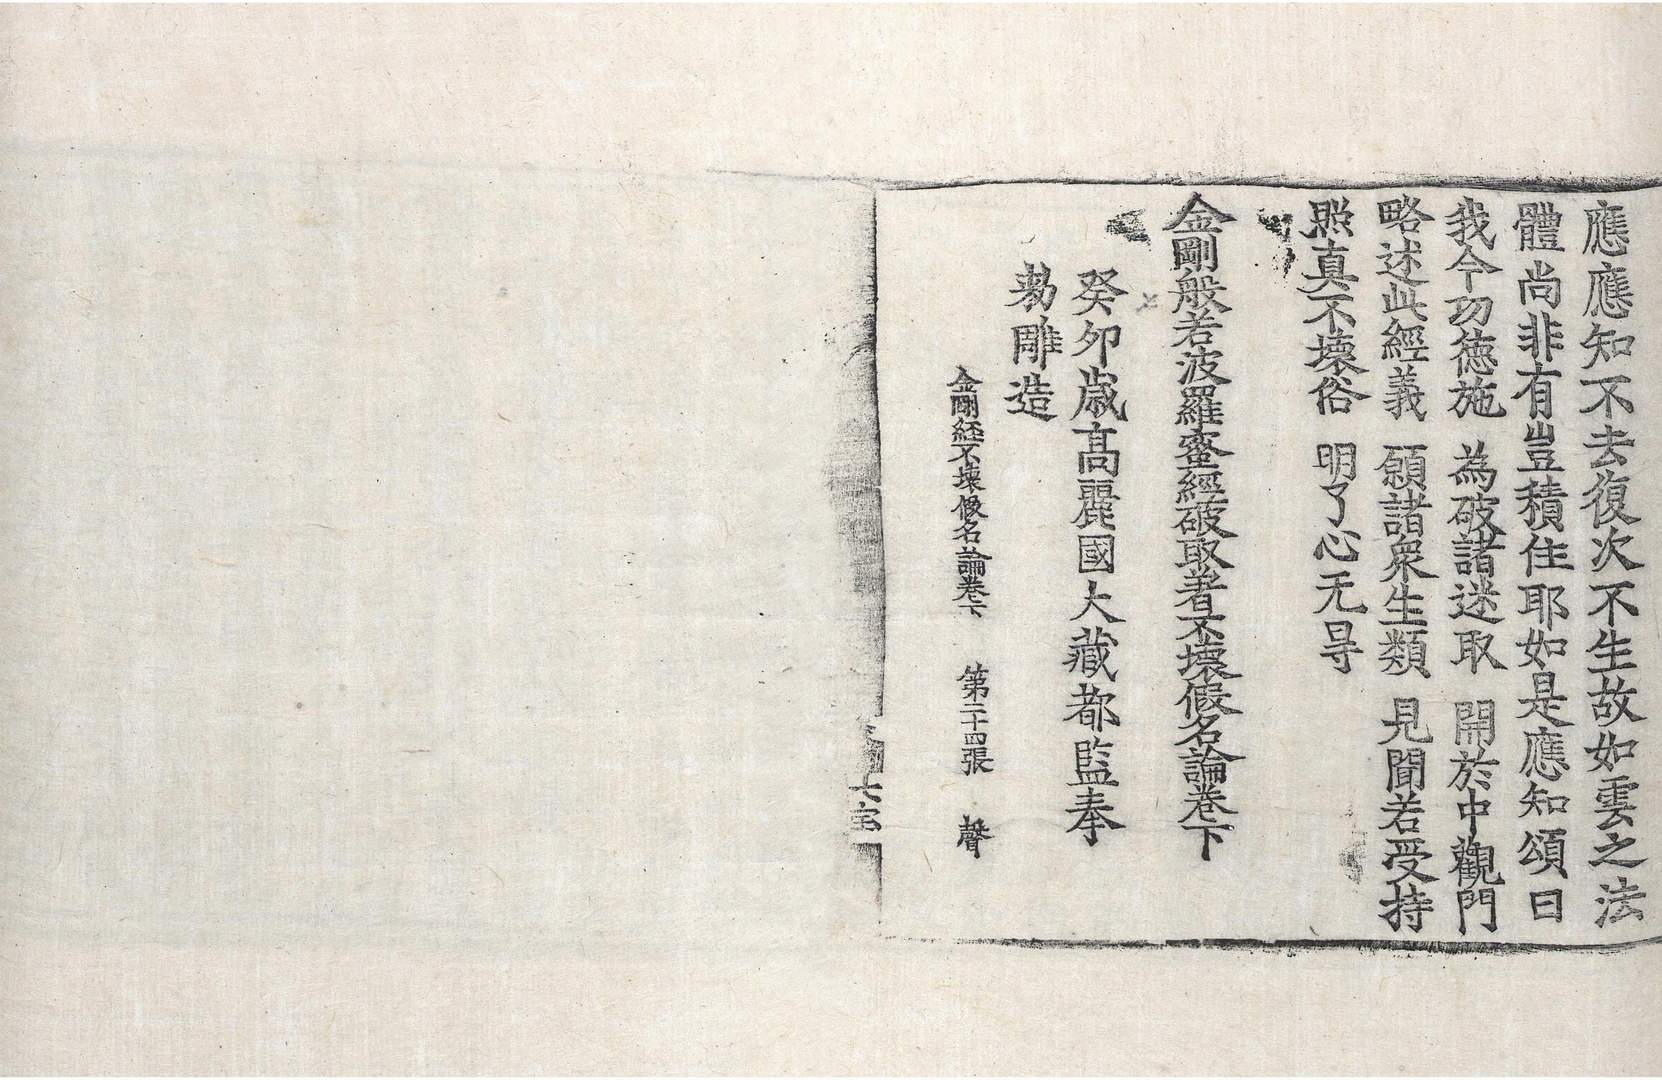 應應知不去復次不生故如雲之法
體尚非有豈積住耶如是應知頌曰
我今功德施　為破諸迷取　開於中觀門
略述此經義　願諸衆生類　見聞若受持
照真不壞俗　明了心无㝵
金剛般若波羅蜜經破取著不壞假名論卷下
癸卯歲高麗國大藏都監奉
勑雕造
金剛經不壞假名論卷下　第二十四張　聲